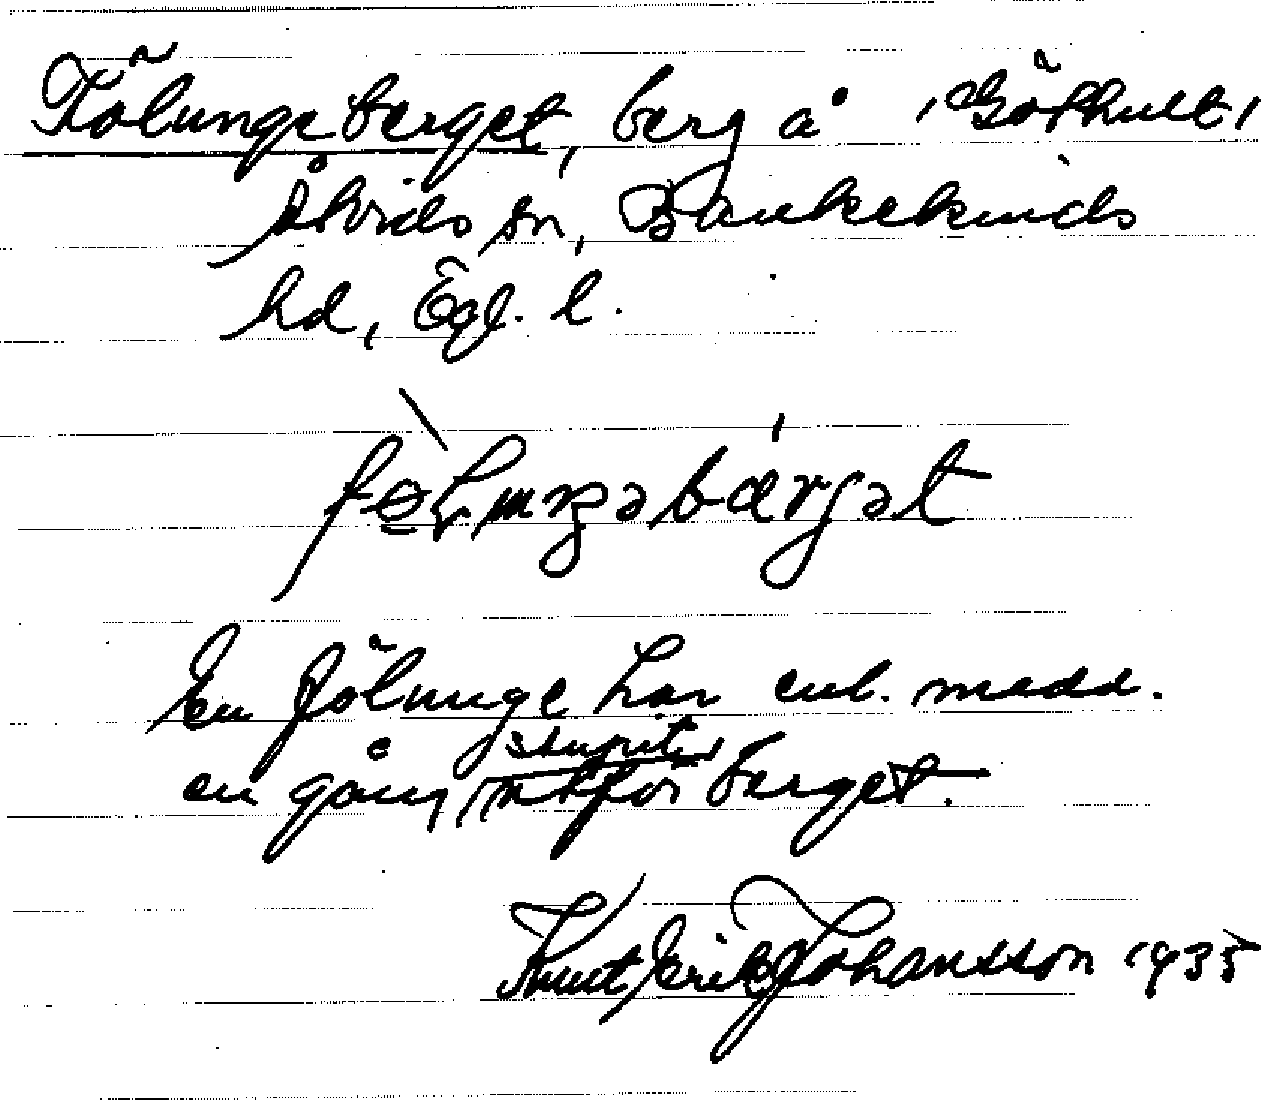 Fölungeberget, berg å Göthult,
Åtvids sn, Bankekinds
hd, Ögl. l.
En fölunge har enl. medd.
en gång stupat utför berget.
Knut Erik Johansson 1935